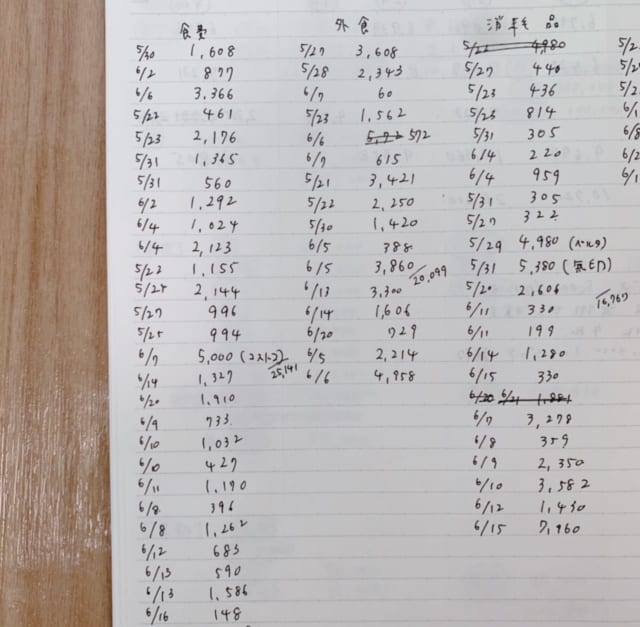 食費
5/30 1,608
6/2 877
6/6 3,366
5/22 461
5/23 2,176
5/31 1,365
5/31 560
6/2 1,292
6/4 1,024
6/4 2,123
5/22 1,155
5/25 2,144
5/27 996
5/25 994
6/7 5,000 (コストコ)
25,141
6/14 1,327
6/20 1,910
6/9 733
6/10 1,032
6/10 427
6/11 1,190
6/8 396
6/8 1,262
6/12 683
6/13 590
6/13 1,586
6/16 148
外食
5/27 3,608
5/28 2,343
6/7 60
5/23 1,562
6/6 572
6/7 615
5/21 3,421
5/22 2,250
5/30 1,420
6/5 388
6/5 3,860
20,099
6/13 3,300
6/14 1,606
6/20 729
6/5 2,214
6/6 4,958
消耗品
5/22 4,980
5/27 440
5/23 436
5/23 814
5/31 305
6/4 220
6/4 959
5/31 305
5/27 322
5/29 4,980 (ベルタ)
5/31 5,380
5/20 2,606
16,767
6/11 330
6/11 199
6/14 1,280
6/15 330
6/20 6/21 1,881
6/7 3,278
6/8 359
6/9 2,350
6/10 3,582
6/12 1,430
6/15 7,960